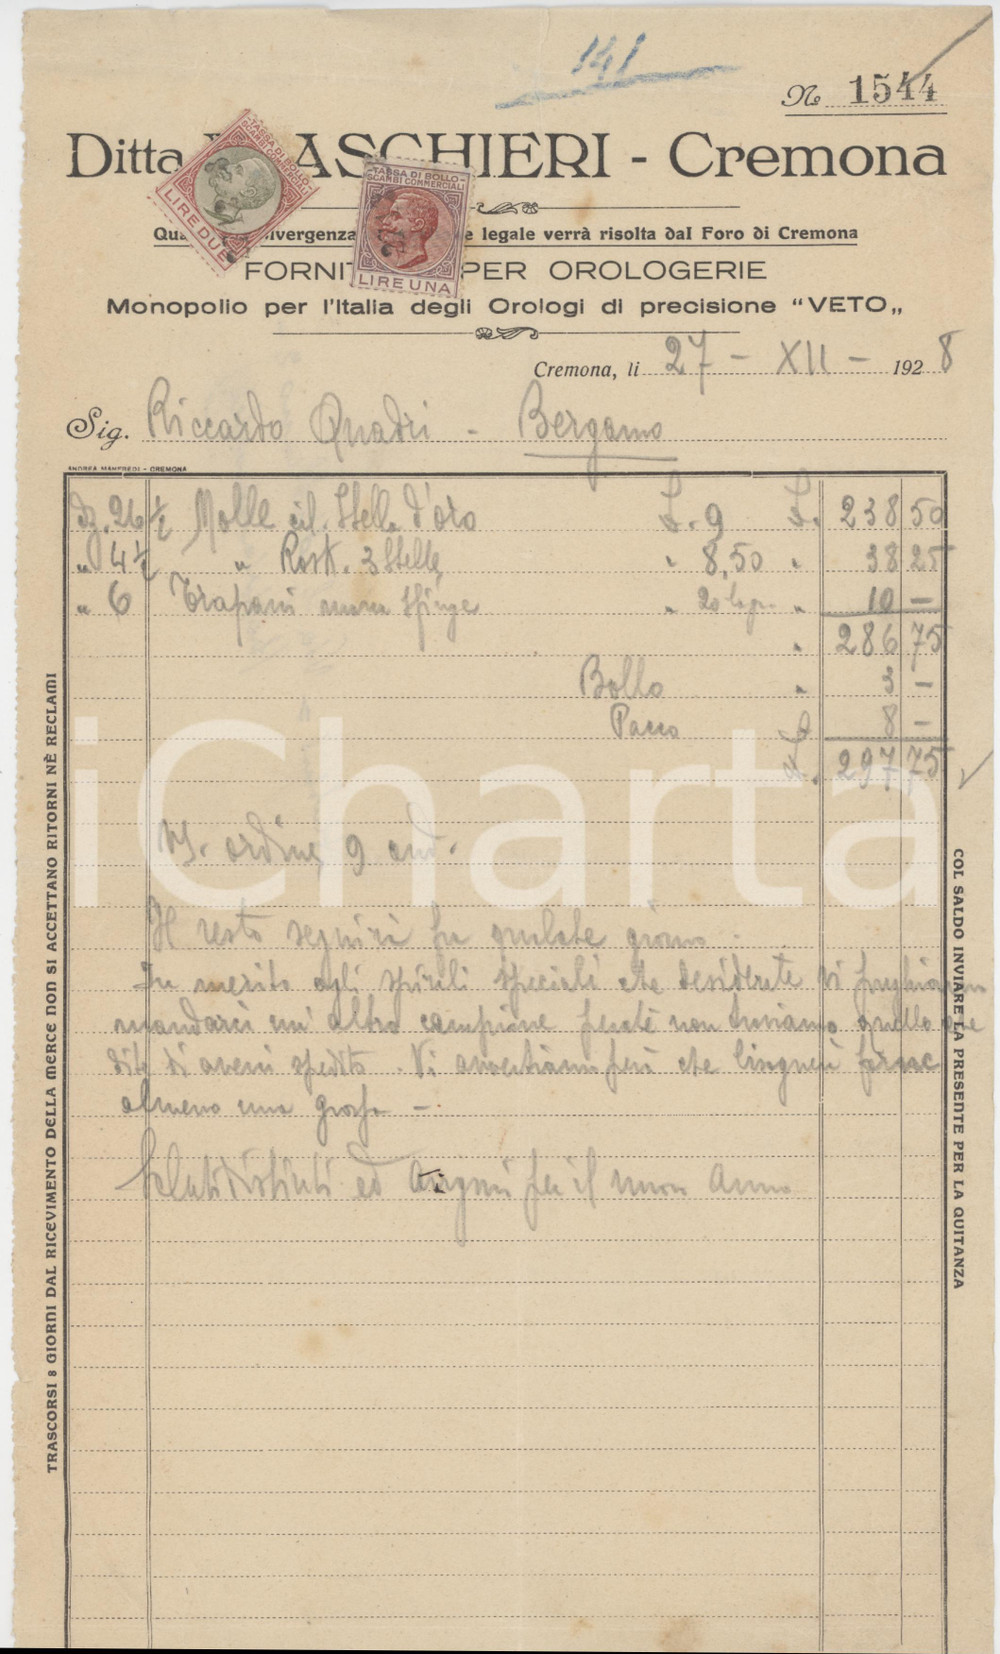 141
No 1544
Ditta ASCHIERI - Cremona
TASSA DI BOLLO
SCAMBI COMMERCIALI
LIRE DUE
TASSA DI BOLLO
SCAMBI COMMERCIALI
LIRE UNA
legale verrà risolta dal Foro di Cremona
FORNIT PER OROLOGERIE
Monopolio per l'Italia degli Orologi di precisione "VETO„
Cremona, li 27 - XII - 1928
Sig. Riccardo Quadri - Bergamo
ANDREA MANFREDI - CREMONA
dz. 26 ½ Molle cil. Stella d'oro £. 9 £. 238 50
„ 4 ½ „ Rosk. 3 Stelle „ 8,50 „ 38 25
„ 6 Trapani „ 20 „ 10 —
„ 286 75
Bollo „ 3 —
Pacco 8 —
£. 297 75
Vs. ordine 9 and.
Il resto seguirà fra qualche giorno.
In merito agli spirali speciali che desiderate Vi preghiamo
mandarci un altro campione perchè non troviamo quello che
dite di averci spedito. Vi avvertiamo però che bisognerà farne
almeno una grossa —
Saluti distinti ed auguri per il nuovo anno
TRASCORSI 8 GIORNI DAL RICEVIMENTO DELLA MERCE NON SI ACCETTANO RITORNI NÈ RECLAMI
COL SALDO INVIARE LA PRESENTE PER LA QUITANZA
iCharta